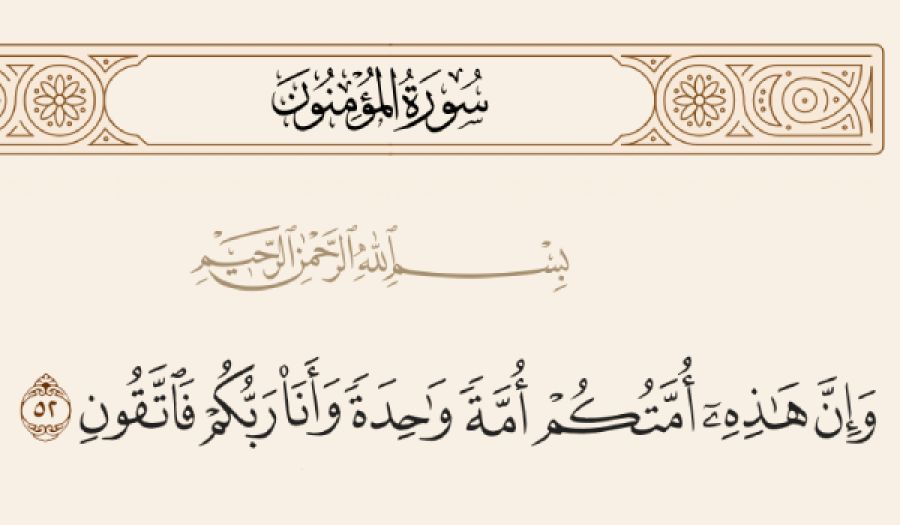 سُورَةُ المُؤْمِنُونَ
بِسْمِ اللَّهِ الرَّحْمَٰنِ الرَّحِيمِ
وَإِنَّ هَـٰذِهِۦٓ أُمَّتُكُمْ أُمَّةً وَٰحِدَةً وَأَنَا۠ رَبُّكُمْ فَٱتَّقُونِ ٥٢